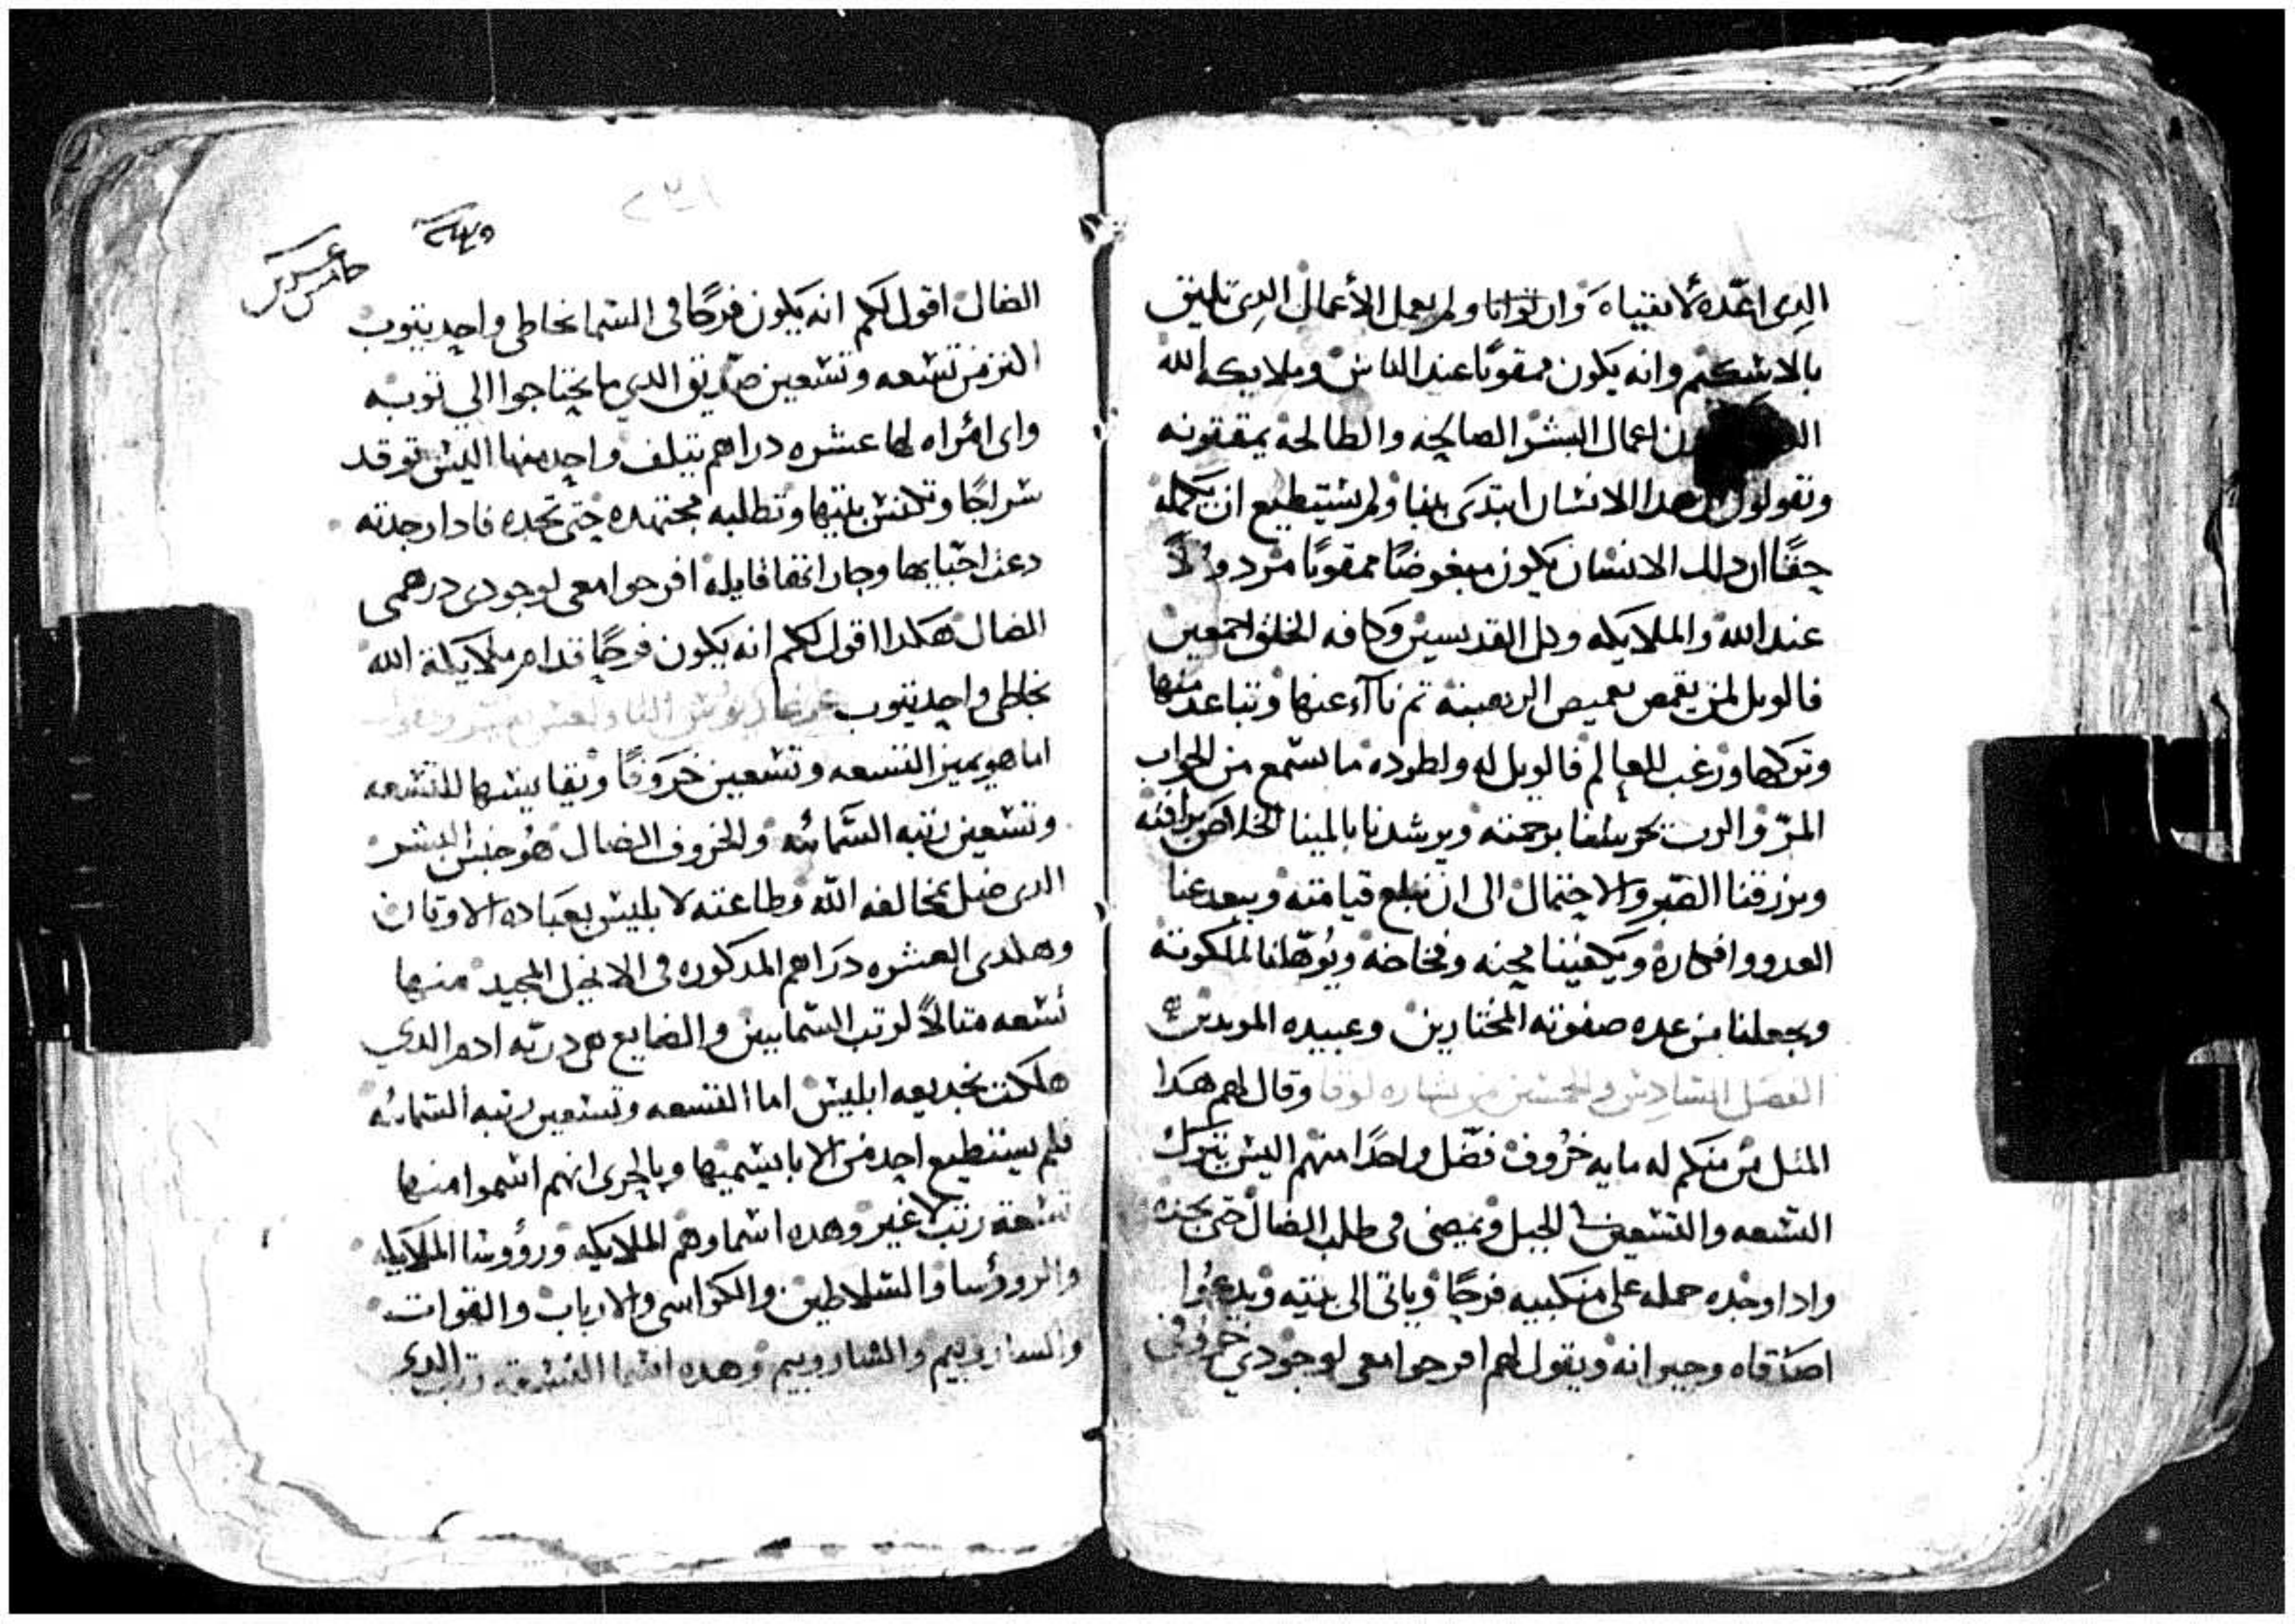 الدى اعده لاتقياه وان توانا ولم يعمل الأعمال الدى تليق
بالاشكيم وانه يكون ممقوتًا عند الناس وملايكه الله
اعمال البشر الصالحه والطالحة يمقتونه
وتقولون هدا الانشان ابتدى بنيا ولم يشتطيع ان يكمله
حقًا ان دلك الانشان يكون مبغوضًا ممقوتًا مردولاً
عند الله والملايكه وكل القديسين وكافه الخلق اجمعين
فالويل لمن يقمص بقميص الرهبنة تم ناآء عنها وتباعد منها
وتركها ورغب للعالم فالويل له ولطوده ما يسمع من الجواب
المرّ والرب يحرسنا برحمته ويرشدنا بالمينا الخلاص برافته
ويرزقنا الصبر والاحتمال الى ان نبلع قيامته ويبعد عنا
العدو وافكاره ويكفينا محنه وفخاخه ويُوهلنا لملكوته
ويجعلنا من عده صفوته المختارين وعبيده المويدين
الفصل السادس والخمسين من بشاره لوقا وقال لهم هدا
المتل من منكم له مايه خروف فضل واحدًا منهم اليش يترك
التشعه والتشعين فى الجبل ويمضى فى طلب الضال حتى يجده
وادا وجده حمله على منكبيه فرحًا وياتى الى بيته ويدعوا
اصدقاه وجيرانه ويقول لهم افرحوا معى لوجودي خروفى
خامس عشر
الضال اقول لكم انه يكون فرحًا فى الشما بخاطى واحد يتوب
اكتر من تشعه وتشعين صديق الدي ما يحتاجوا الي توبه
واى امراه لها عشره دراهم يتلف واحد منها اليش توقد
شراجًا وتكنش بيتها وتطلبه مجتهده حتى تجده فادا وجدته
دعت احبايها وجاراتها قايله افرحوا معى لوجودى درهمى
الضال هكدا اقول لكم انه يكون فرحًا قدام ملايكة الله
بخاطى واحد يتوب
اما هو يميز التسعه وتشعين خروفًا وبقا يشبها للتشعه
وتشعين رتبه الشمائيه والخروف الضال هو جنس البشر
الدى ضل بمخالفه الله وطاعته لابليش بعباده الاوتان
وهكدى العشره دراهم المدكوره فى الانجيل المجيد منها
تشعه متالاً لرتب الشمايين والضايع هى دريه ادم الدي
هلكت بخديعه ابليش اما التسعه وتشعين رتبه الشمائيه
فلم يستطيع احد من الابا يشميها وبالحرى انهم اشموا منها
تشعة رتب لا غير وهده اشماوهم الملايكه ورؤوشا الملايكه
والروؤسا والشلاطين والكراسى والارباب والقوات
والساروبيم والشاروبيم وهده اشما التشعه رتب الدى